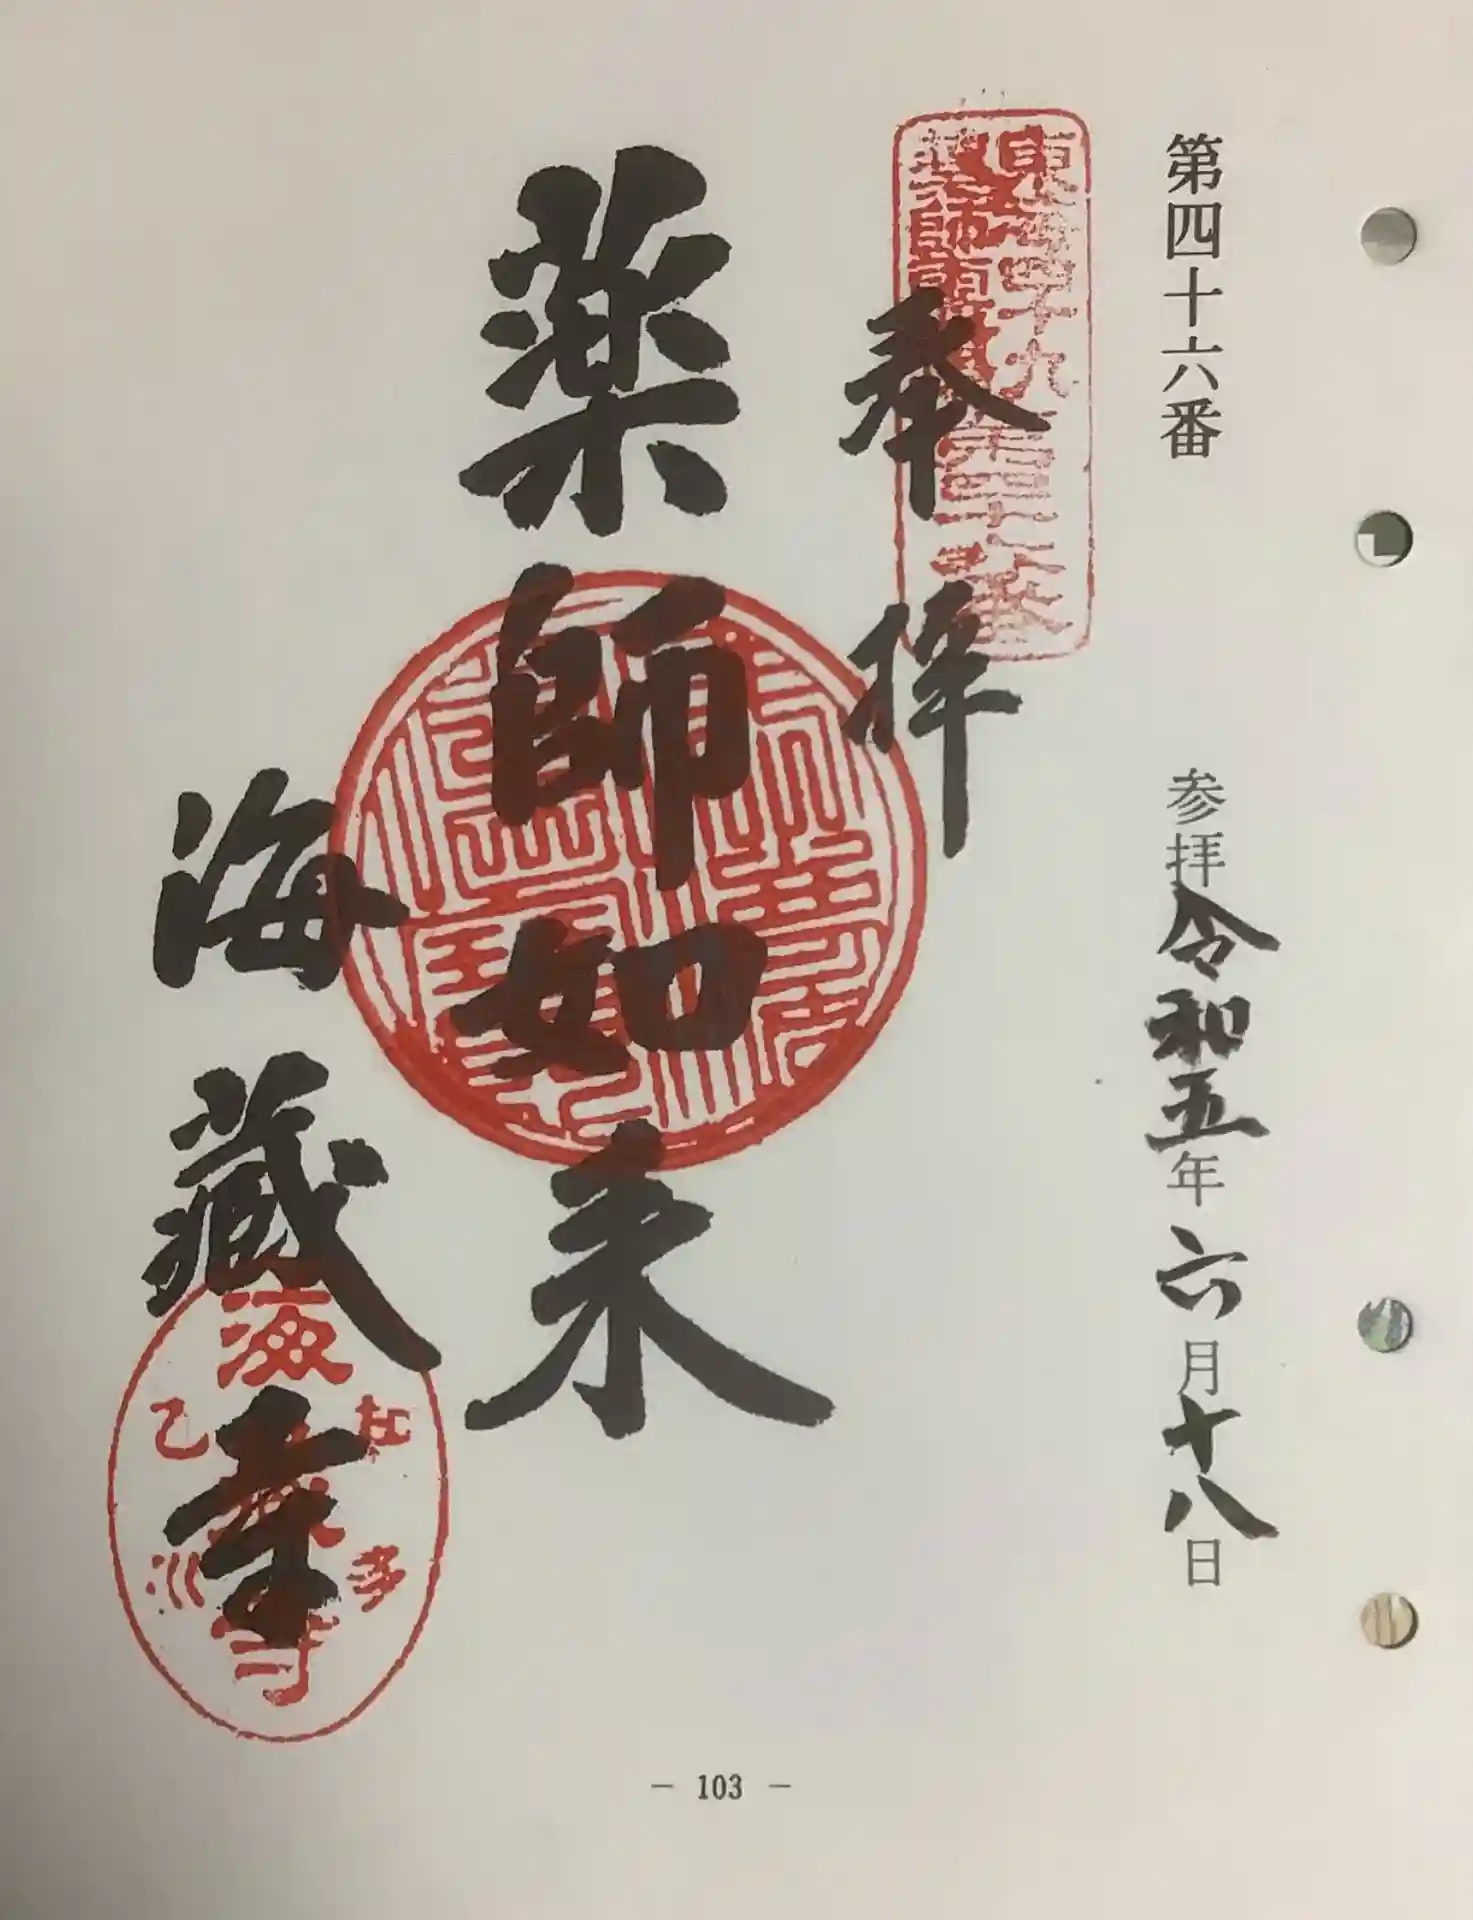 第四十六番
参拝令和五年六月十八日
奉拝
薬師如来
海蔵寺
海蔵寺
知多
乙川
― 103 ―